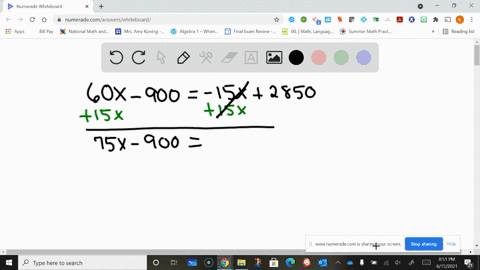 Numerade Whiteboard
numerade.com/answers/whiteboard/
Apps
Bill Pay
National Math and...
Mrs. Amy Koning -...
Algebra 1 – When...
Final Exam Review -...
IXL | Math, Languag...
Summer Math Practi...
Reading list
60x - 900 = -15x + 2850
+15x +15x
75x - 900 =
www.numerade.com is sharing your screen.
Stop sharing
Hide
Type here to search
8:51 PM
6/11/2021